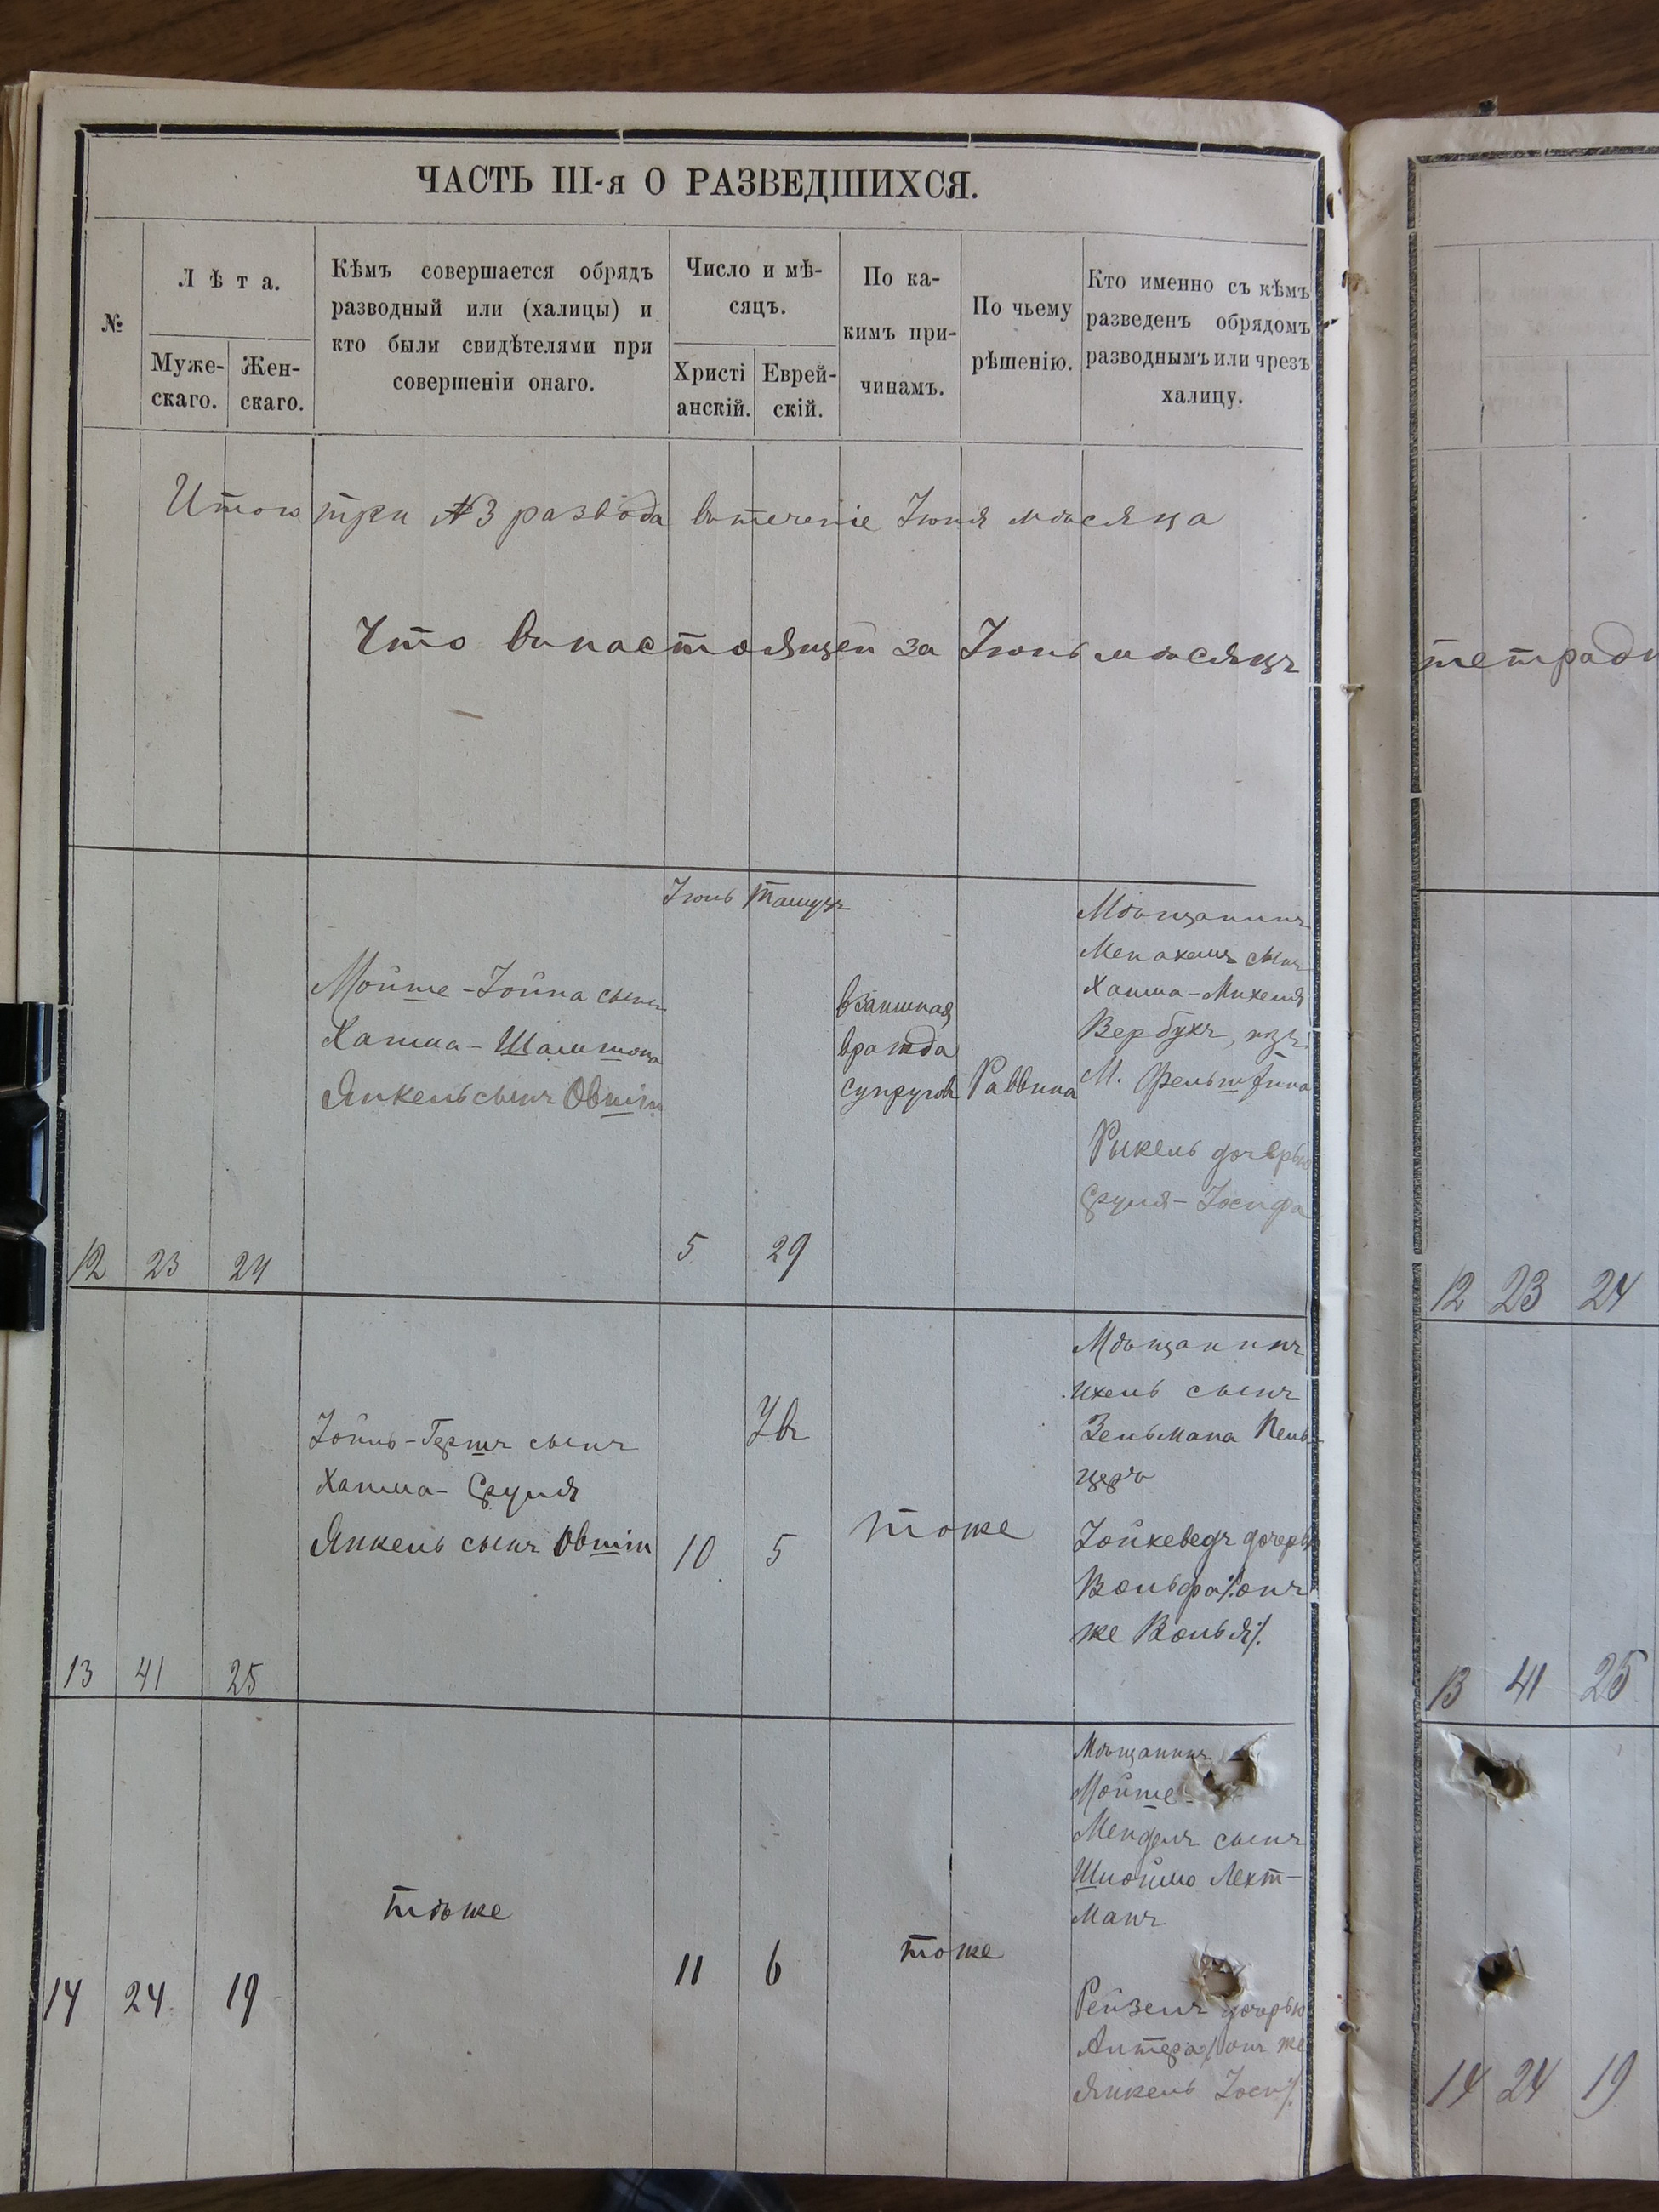 ЧАСТЬ III-я О РАЗВЕДШИХСЯ.
№
Лѣта.
Муже-
скаго.
Жен-
скаго.
Кѣмъ совершается обрядъ
разводный или (халицы) и
кто были свидѣтелями при
совершеніи онаго.
Число и мѣ-
сяцъ.
Христі
анскій.
Еврей-
скій.
По ка-
кимъ при-
чинамъ.
По чьему
рѣшенію.
Кто именно съ кѣмъ
разведенъ обрядомъ
разводнымъ или чрезъ
халицу.
Итого три №3 развода втеченіе Іюня мѣсяца
Что внастоящей за Іюнь мѣсяцъ
тетради
12
23
24
Мойше-Іойна сынъ
Хаима-
Янкель сынъ
Іюнь
5
29
взаимная
вражда
супруговъ
Раввина
Мѣщанинъ
Менахемъ сынъ
Хаима-Михеля
Вербухъ, изъ
М. Фельштина
Рыкель дочерью
Сруля-Іосифа
12 23 24
13
41
25
Іойнь-Гершъ сынъ
Хаима-Сруля
Янкель сынъ
10
5
тоже
Мѣщанинъ
Ихель сынъ
Зельмана Пель-
церъ
Іойхеведъ дочерью
Вольфа онъ
же
13 41 25
14
24
19
тѣже
11
6
тоже
Мѣщанинъ
Мойше-
Мендель сынъ
Шлоймо Лехт-
манъ
дочерью
Антера онъ же
Янкель
14 24 19